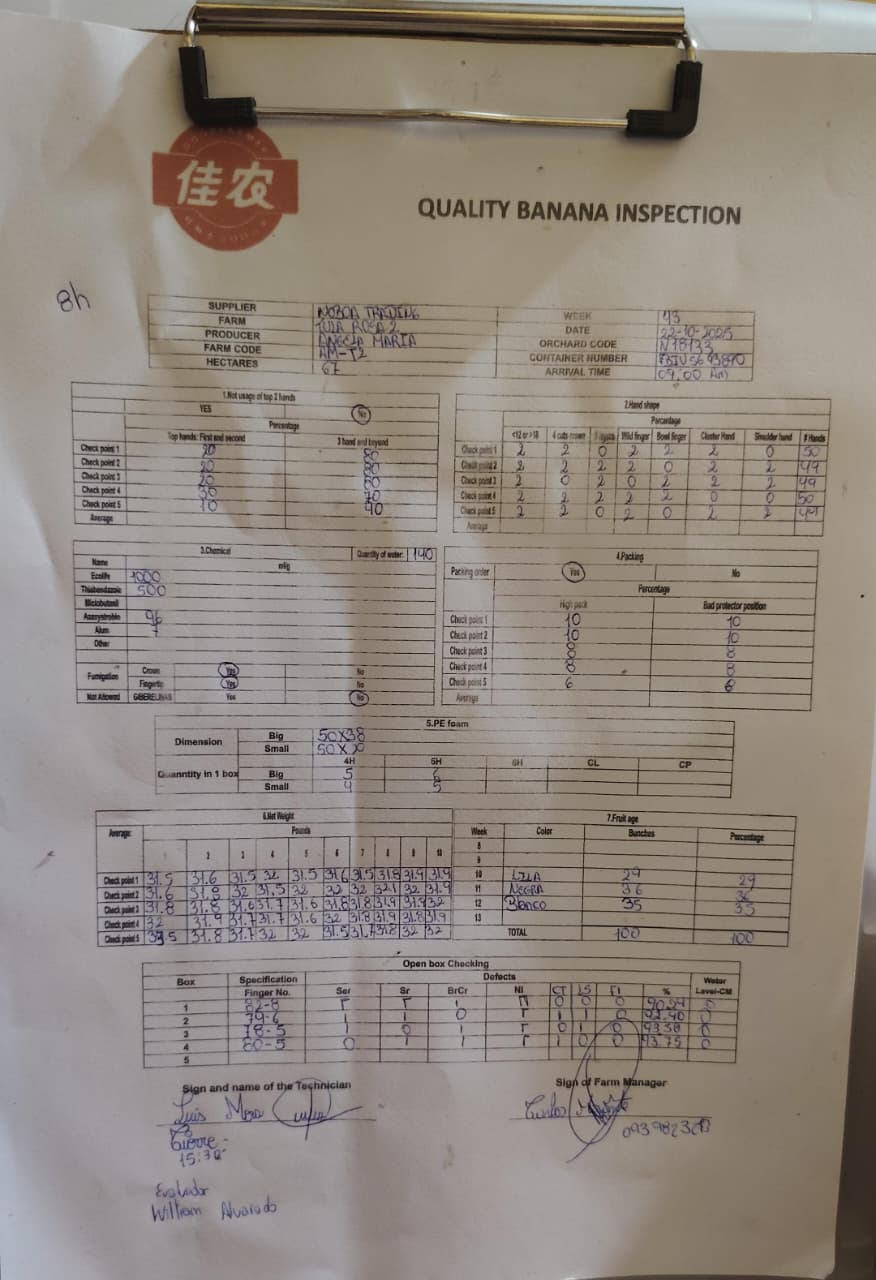 佳农
QUALITY BANANA INSPECTION
8h
SUPPLIER NOBOA TRADING
FARM JULIA ROSA 2
PRODUCER ANGELA MARIA
FARM CODE AM-T2
HECTARES 67
WEEK 43
DATE 22-10-2025
ORCHARD CODE N78133
CONTAINER NUMBER
ARRIVAL TIME 09:00 AM
1.Not usage of top 2 hands
YES No
Percentage
Top hands: First and second 3 hand and beyond
Check point 1 20 80
Check point 2 20 80
Check point 3 20 80
Check point 4 30 70
Check point 5 10 90
Average
2.Hand shape
Percentage
<12 or >18 4 cuts crown Wild finger Bowl finger Cluster Hand Shoulder hand # Hands
Check point 1 2 2 0 2 2 2 0 50
Check point 2 2 2 2 2 0 2 2 49
Check point 3 2 0 2 0 2 2 2 49
Check point 4 2 2 2 2 2 0 0 50
Check point 5 2 2 0 2 0 2 2 49
Average
3.Chemical Quantity of water: 140
Name m/g
Ecolife 1000
Thiabendazole 500
Miclobutanil
Azoxystrobin 96
Alum 7
Other
Fumigation Crown Yes No
Fingertip Yes No
Not Allowed GIBERELINAS Yes No
4.Packing
Packing order Yes No
Percentage
High pack Bad protector position
Check point 1 10 10
Check point 2 10 10
Check point 3 8 8
Check point 4 8 8
Check point 5 6 6
Average
5.PE foam
Dimension Big 50X38
Small 50X20
4H 5H 6H CL CP
Quanntity in 1 box Big 5 6
Small 4 5
6.Net Weight
Average: Pounds
1 2 3 4 5 6 7 8 9 10
Check point 1 31.5 31.6 31.5 32 31.5 31.6 31.5 31.8 31.9 31.9
Check point 2 31.6 31.8 32 31.5 32 32 32 32.1 32 31.9
Check point 3 31.8 31.8 31.6 31.7 31.6 31.8 31.8 31.9 31.9 32
Check point 4 32 31.9 31.7 31.7 31.6 32 31.8 31.9 31.8 31.9
Check point 5 31.8 31.7 32 32 31.5 31.7 31.8 32 32
7.Fruit age
Week Color Bunches Percentage
8
9
10 LILA 29 29
11 NEGRA 36 36
12 Blanco 35 35
13
TOTAL 100 100
Open box Checking
Box Specification Defects Water
Finger No. Scr Sr BrCr NI CT LS FI % Level-CM
1 82-8 0 0 0 0
2 79-6 1 1 0 1 1 0 92.40 0
3 78-5 1 0 1 0 1 0 93.58 0
4 80-5 0 1 1 1 0 0 93.75 0
5
Sign and name of the Technician
Luis Mora
Cierre -
15:30
Sign of Farm Manager
Carlos
Evaluador
William Alvarado